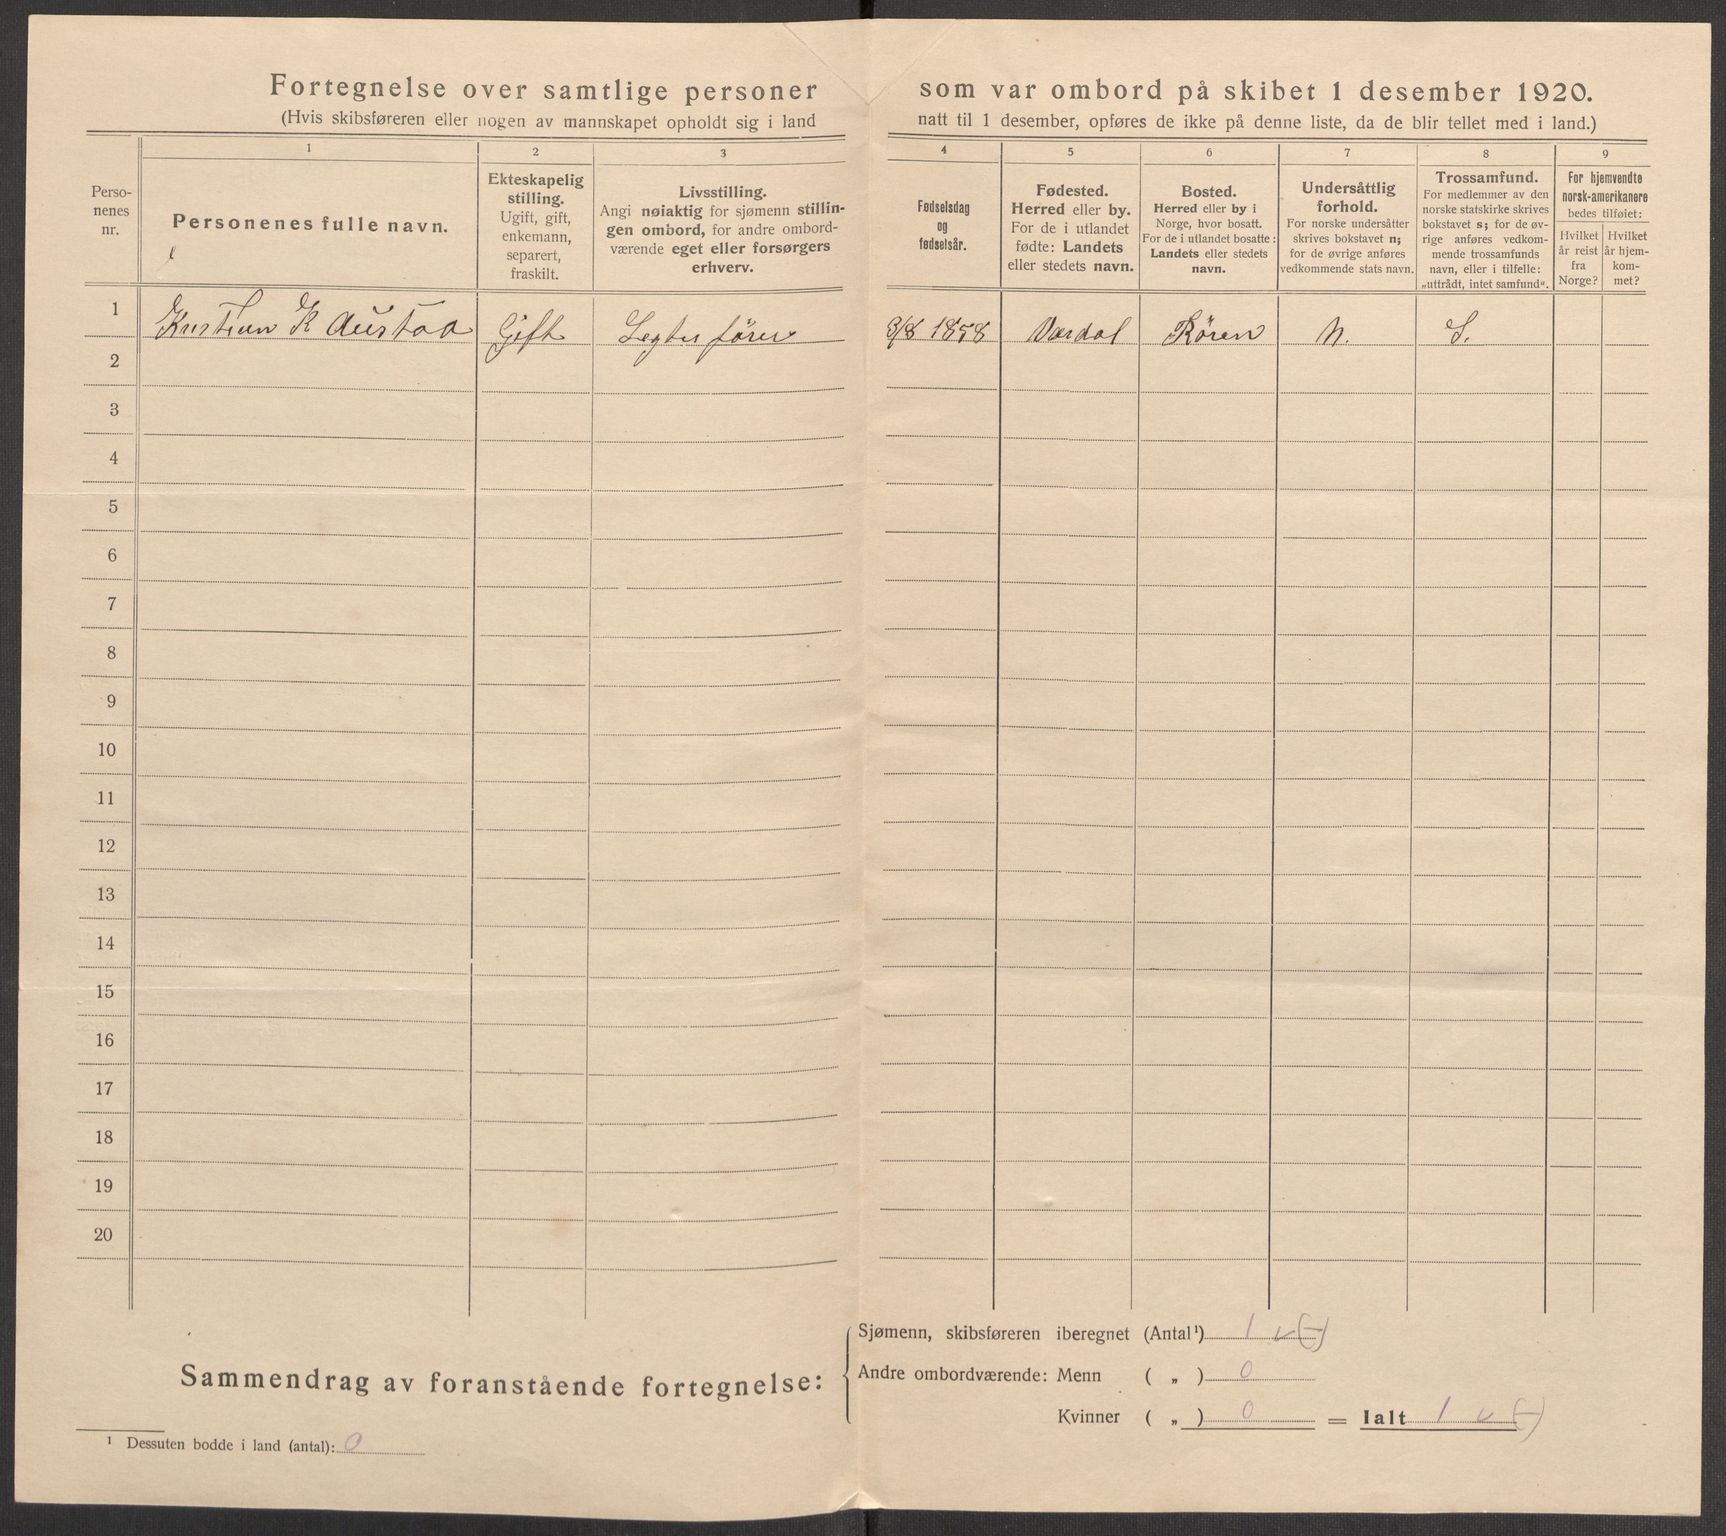 Fortegnelse over samtlige personer som var ombord på skibet 1 desember 1920.
(Hvis skibsføreren eller nogen av mannskapet opholdt sig i land natt til 1 desember, opføres de ikke på denne liste, da de blir tellet med i land.)
Perso-
nenes
nr.
1
Personenes fulle navn.
2
Ekteskapelig
stilling.
Ugift, gift,
enkemann,
separert,
fraskilt.
3
Livsstilling.
Angi nøiaktig for sjømenn stillin-
gen ombord, for andre ombord-
værende eget eller forsørgers
erhverv.
4
Fødselsdag
og
fødselsår.
5
Fødested.
Herred eller by.
For de i utlandet
fødte: Landets
eller stedets navn.
6
Bosted.
Herred eller by i
Norge, hvor bosatt.
For de i utlandet bosatte:
Landets eller stedets
navn.
7
Undersåttlig
forhold.
For norske undersåtter
skrives bokstavet n;
for de øvrige anføres
vedkommende stats navn.
8
Trossamfund.
For medlemmer av den
norske statskirke skrives
bokstavet s; for de øv-
rige anføres vedkom-
mende trossamfunds
navn, eller i tilfelle:
„uttrådt, intet samfund“.
9
For hjemvendte
norsk-amerikanere
bedes tilføiet:
Hvilket
år reist
fra
Norge?
Hvilket
år hjem-
kom-
met?
1 Kristian K Austad Gift Legter fører 3/8 1858 Værdal Røren N. S.
2
3
4
5
6
7
8
9
10
11
12
13
14
15
16
17
18
19
20
Sammendrag av foranstående fortegnelse:
Sjømenn, skibsføreren iberegnet (Antal¹) 1 v(-)
Andre ombordværende: Menn ( „ ) 0
Kvinner ( „ ) 0 = Ialt 1 v(-)
¹ Dessuten bodde i land (antal): 0